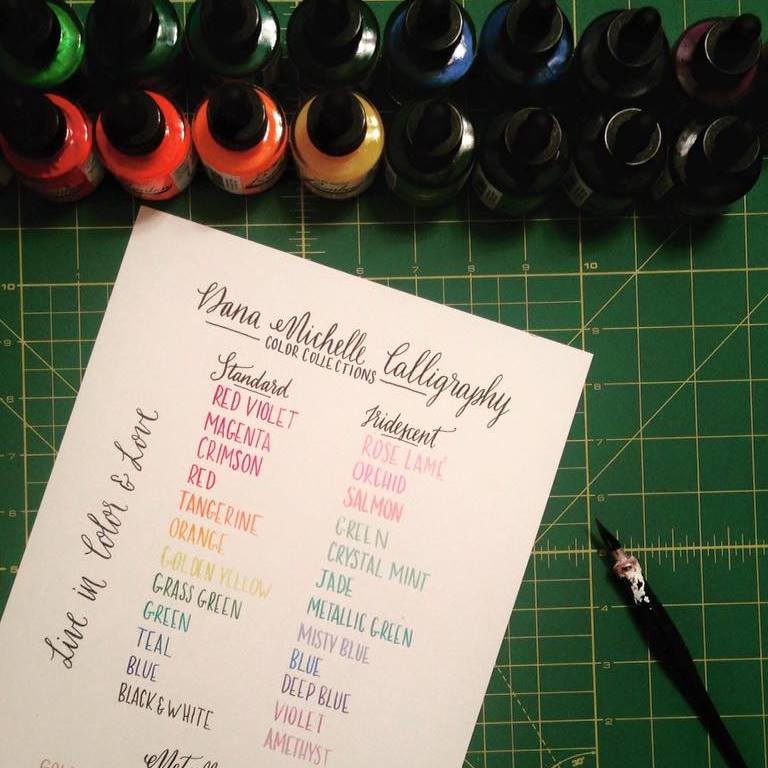 Dana Michelle Calligraphy
COLOR COLLECTIONS
Standard
RED VIOLET
MAGENTA
CRIMSON
RED
TANGERINE
ORANGE
GOLDEN YELLOW
GRASS GREEN
GREEN
TEAL
BLUE
BLACK & WHITE
Iridescent
ROSE LAMÉ
ORCHID
SALMON
GREEN
CRYSTAL MINT
JADE
METALLIC GREEN
MISTY BLUE
BLUE
DEEP BLUE
VIOLET
AMETHYST
Live in Color & Love